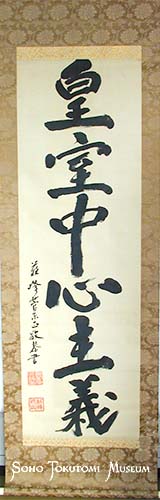 皇室中心主義
蘇峰菅正敬書
Soho Tokutomi Museum